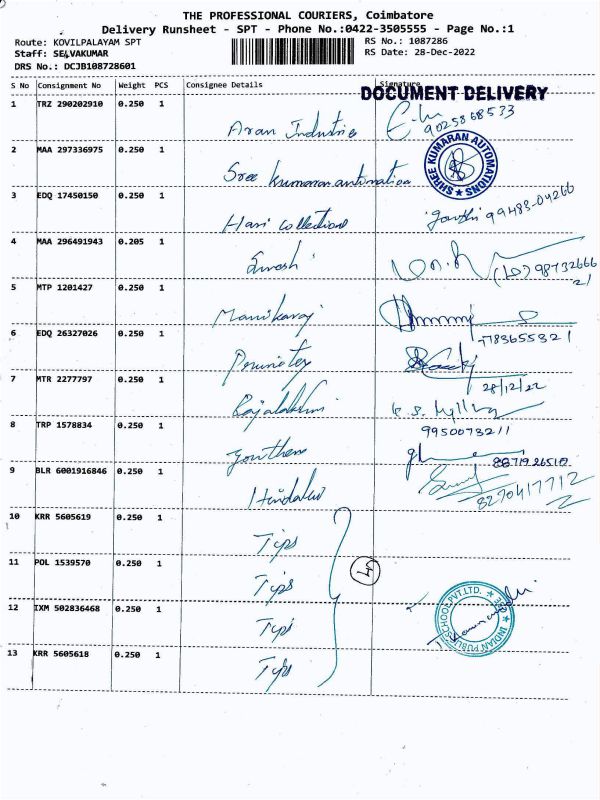 THE PROFESSIONAL COURIERS, Coimbatore
Delivery Runsheet - SPT - Phone No.:0422-3505555 - Page No.:1
Route: KOVILPALAYAM SPT
RS No.: 1087286
Staff: SELVAKUMAR
RS Date: 28-Dec-2022
DRS No.: DCJB108728601
S No Consignment No Weight PCS Consignee Details Signature
DOCUMENT DELIVERY
1 TRZ 290202910 0.250 1 Aran Industries
9025868533
2 MAA 297336975 0.250 1 Sree kumaran automation
SHREE KUMARAN AUTOMATIONS
3 EDQ 17450150 0.250 1 Hari collections
99488-04266
4 MAA 296491943 0.205 1
5 MTP 1201427 0.250 1 Manikaraj
6 EDQ 26327026 0.250 1
7 MTR 2277797 0.250 1 Rajalakshmi
28/12/22
8 TRP 1578834 0.250 1 Gowtham
9950073211
9 BLR 6001916846 0.250 1 Hindalco
8871926510
8270417712
10 KRR 5605619 0.250 1 Tips
11 POL 1539570 0.250 1 Tips
4
12 IXM 502836468 0.250 1 Tips
INDIAN PUBLIC SCHOOL PVT.LTD.
13 KRR 5605618 0.250 1 Tips